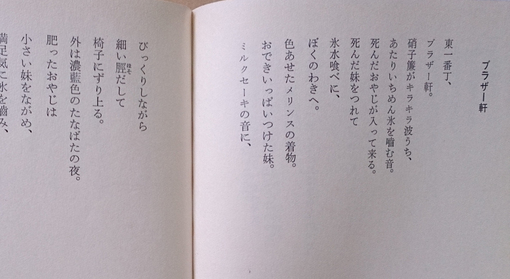 ブラザー軒
東一番丁、
ブラザー軒。
硝子簾がキラキラ波うち、
あたりいちめん氷を噛む音。
死んだおやじが入って来る。
死んだ妹をつれて
氷水喰べに、
ぼくのわきへ。
色あせたメリンスの着物。
おできいっぱいつけた妹。
ミルクセーキの音に、
びっくりしながら
細い脛だして
ほそ
椅子にずり上る。
外は濃藍色のたなばたの夜。
肥ったおやじは
小さい妹をながめ、
満足気に氷を噛み、